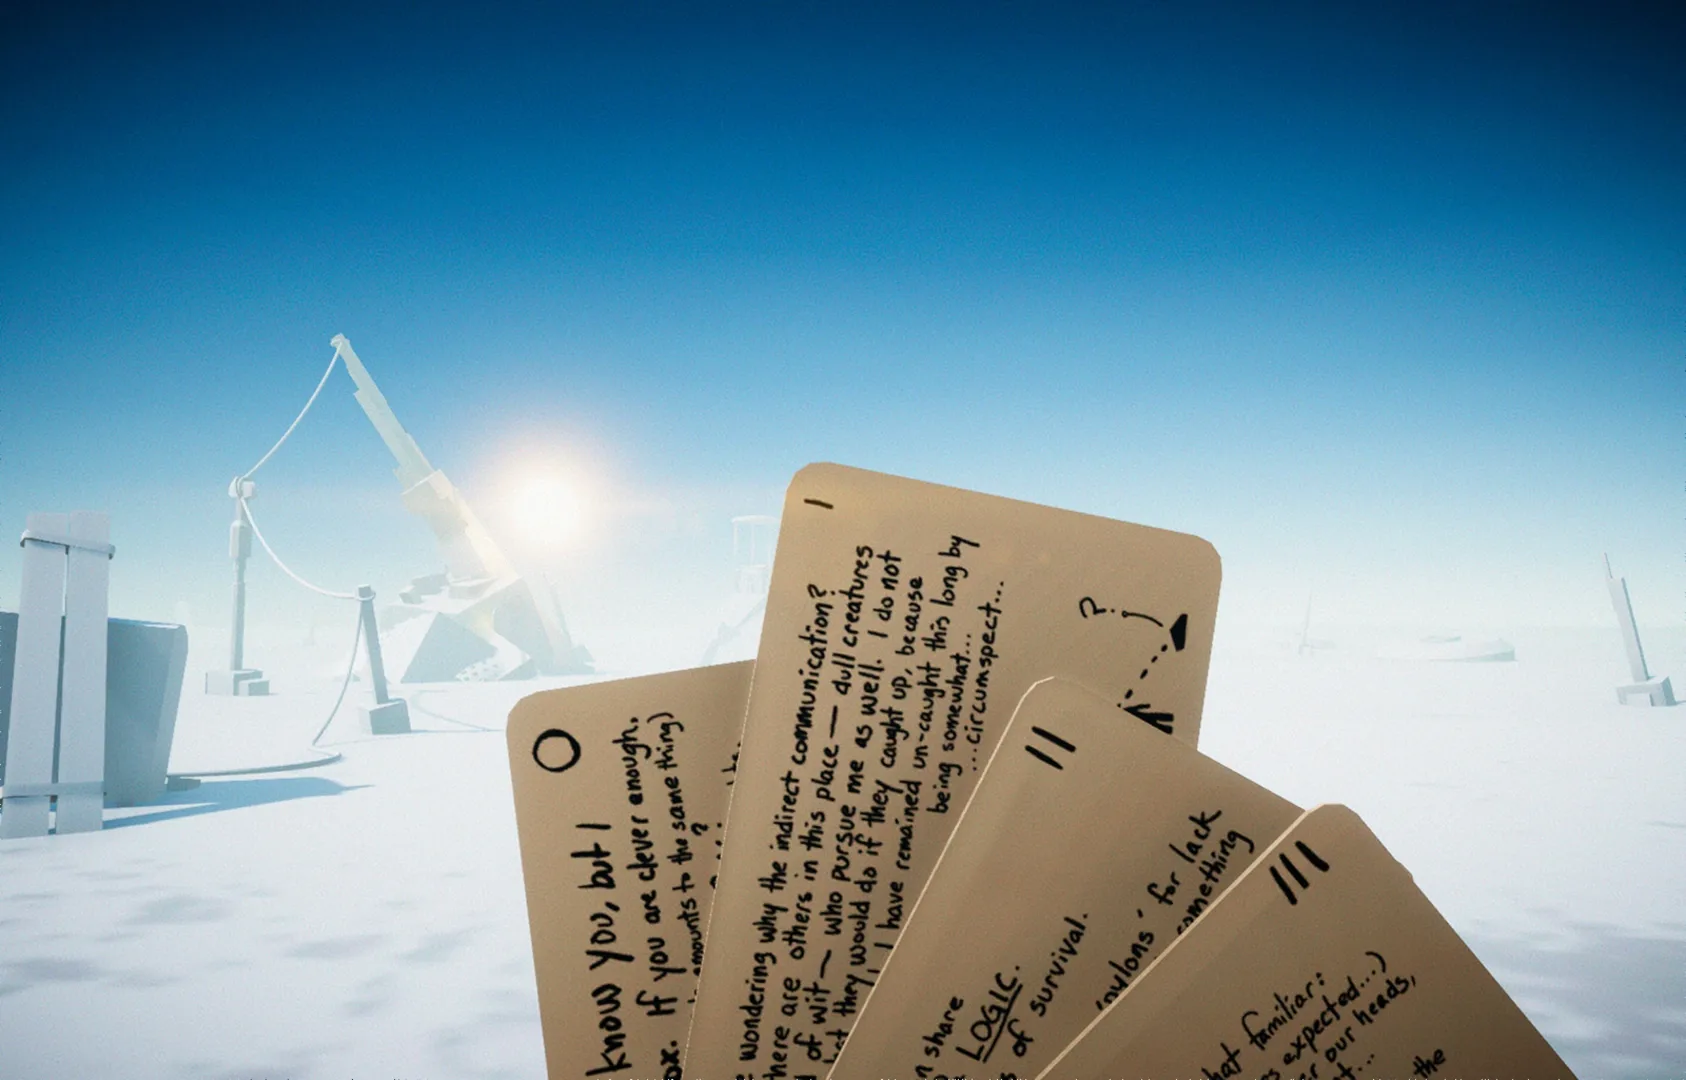 O
know you, but I
ox. If you are clever enough,
amounts to the same thing)
?
I
wondering why the indirect communication?
here are others in this place — dull creatures
of wit — who pursue me as well. I do not
but they would do if they caught up, because
I have remained un-caught this long by
being somewhat...
...circumspect...
?
II
n share
LOGIC.
of survival.
'pylons' for lack
something
III
hat familiar:
rs expected...)
r our heads,
t...
the